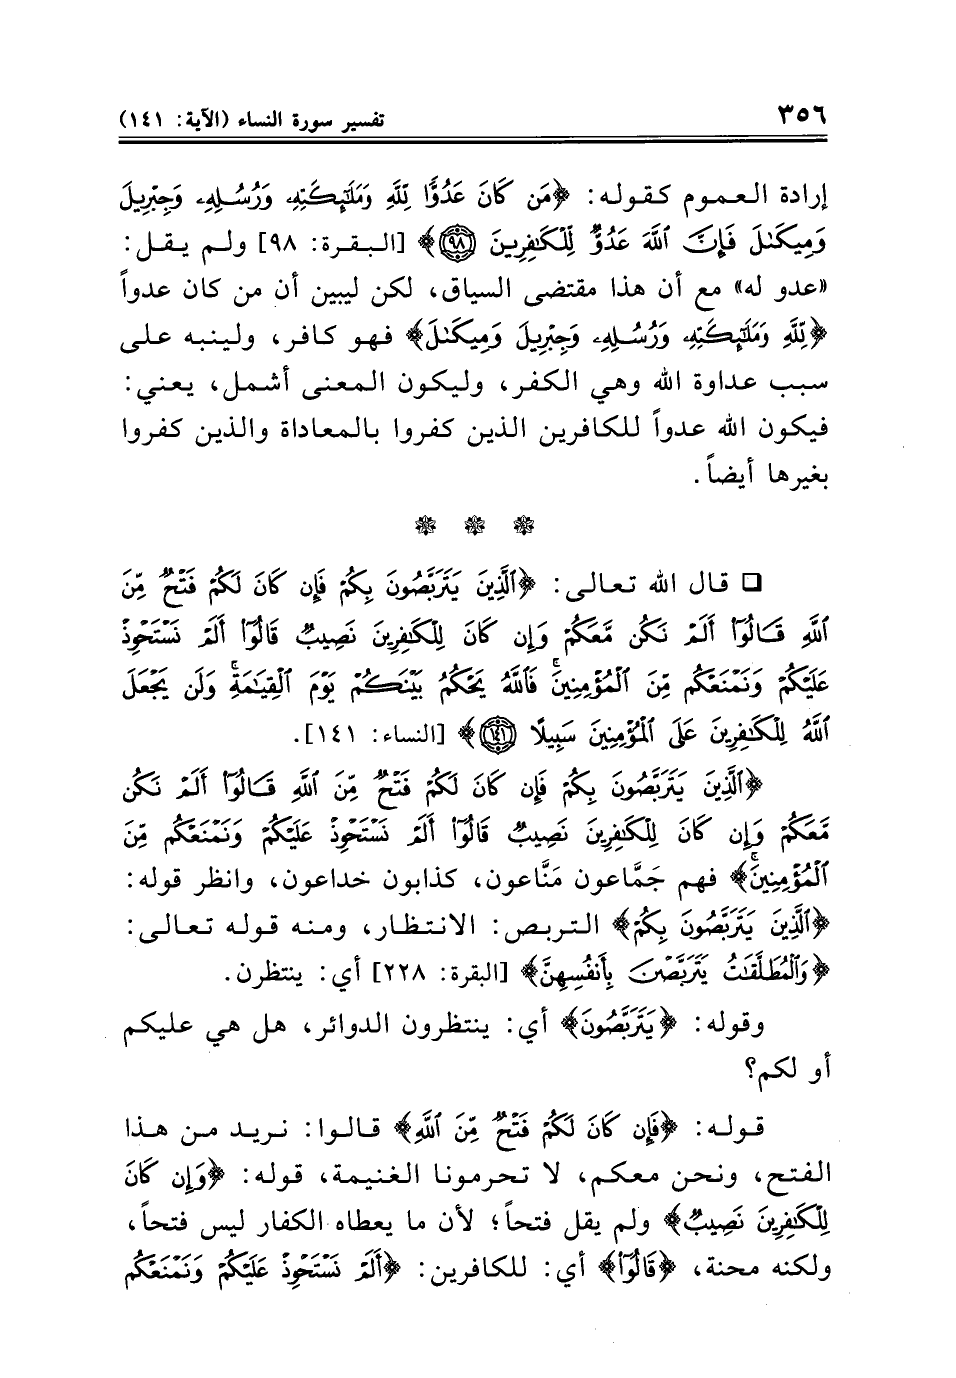 ٣٥٦
تفسير سورة النساء (الآية: ١٤١)
إرادة العموم كقوله: ﴿مَن كَانَ عَدُوًّا لِّلَّهِ وَمَلَٰٓئِكَتِهِۦ وَرُسُلِهِۦ وَجِبْرِيلَ
وَمِيكَىٰلَ فَإِنَّ ٱللَّهَ عَدُوٌّ لِّلْكَٰفِرِينَ ٩٨﴾ [البقرة: ٩٨] ولم يقل:
«عدو له» مع أن هذا مقتضى السياق، لكن ليبين أن من كان عدواً
﴿لِّلَّهِ وَمَلَٰٓئِكَتِهِۦ وَرُسُلِهِۦ وَجِبْرِيلَ وَمِيكَىٰلَ﴾ فهو كافر، ولينبه على
سبب عداوة الله وهي الكفر، وليكون المعنى أشمل، يعني:
فيكون الله عدواً للكافرين الذين كفروا بالمعاداة والذين كفروا
بغيرها أيضاً.
□ قال الله تعالى: ﴿ٱلَّذِينَ يَتَرَبَّصُونَ بِكُمْ فَإِن كَانَ لَكُمْ فَتْحٌ مِّنَ
ٱللَّهِ قَالُوٓا۟ أَلَمْ نَكُن مَّعَكُمْ وَإِن كَانَ لِلْكَٰفِرِينَ نَصِيبٌ قَالُوٓا۟ أَلَمْ نَسْتَحْوِذْ
عَلَيْكُمْ وَنَمْنَعْكُم مِّنَ ٱلْمُؤْمِنِينَ ۚ فَٱللَّهُ يَحْكُمُ بَيْنَكُمْ يَوْمَ ٱلْقِيَٰمَةِ ۗ وَلَن يَجْعَلَ
ٱللَّهُ لِلْكَٰفِرِينَ عَلَى ٱلْمُؤْمِنِينَ سَبِيلًا ١٤١﴾ [النساء: ١٤١].
﴿ٱلَّذِينَ يَتَرَبَّصُونَ بِكُمْ فَإِن كَانَ لَكُمْ فَتْحٌ مِّنَ ٱللَّهِ قَالُوٓا۟ أَلَمْ نَكُن
مَّعَكُمْ وَإِن كَانَ لِلْكَٰفِرِينَ نَصِيبٌ قَالُوٓا۟ أَلَمْ نَسْتَحْوِذْ عَلَيْكُمْ وَنَمْنَعْكُم مِّنَ
ٱلْمُؤْمِنِينَ ۚ﴾ فهم جَمَّاعون مَنَّاعون، كذابون خداعون، وانظر قوله:
﴿ٱلَّذِينَ يَتَرَبَّصُونَ بِكُمْ﴾ التربص: الانتظار، ومنه قوله تعالى:
﴿وَٱلْمُطَلَّقَٰتُ يَتَرَبَّصْنَ بِأَنفُسِهِنَّ﴾ [البقرة: ٢٢٨] أي: ينتظرن.
وقوله: ﴿يَتَرَبَّصُونَ﴾ أي: ينتظرون الدوائر، هل هي عليكم
أو لكم؟
قوله: ﴿فَإِن كَانَ لَكُمْ فَتْحٌ مِّنَ ٱللَّهِ﴾ قالوا: نريد من هذا
الفتح، ونحن معكم، لا تحرمونا الغنيمة، قوله: ﴿وَإِن كَانَ
لِلْكَٰفِرِينَ نَصِيبٌ﴾ ولم يقل فتحاً؛ لأن ما يعطاه الكفار ليس فتحاً،
ولكنه محنة، ﴿قَالُوٓا۟﴾ أي: للكافرين: ﴿أَلَمْ نَسْتَحْوِذْ عَلَيْكُمْ وَنَمْنَعْكُم